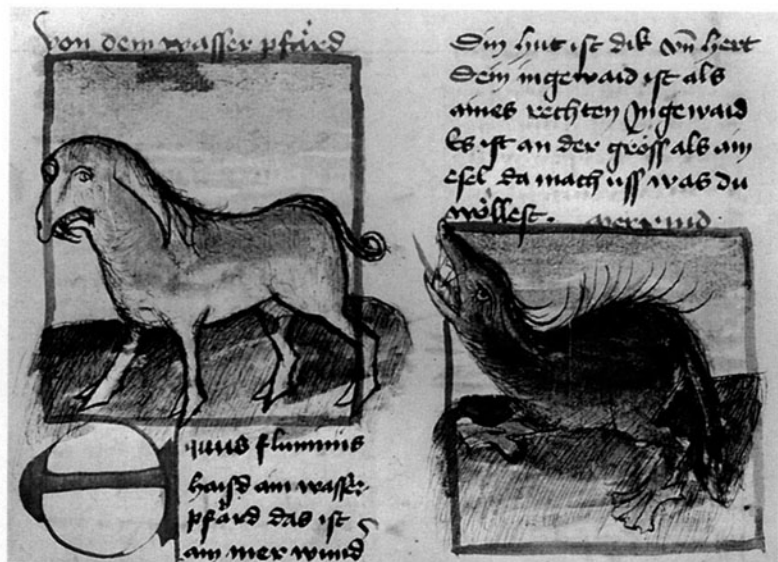 von dem wasser pfärd
Equus fluminis
haisd ain wasser
pfärd das ist
ain mer wund
Din hut ist dik vn̄ hert
Dein ingewaid ist als
aines rechten Ingewaid
Es ist an der gröss als ain
esel da mach uss was du
wöllest.